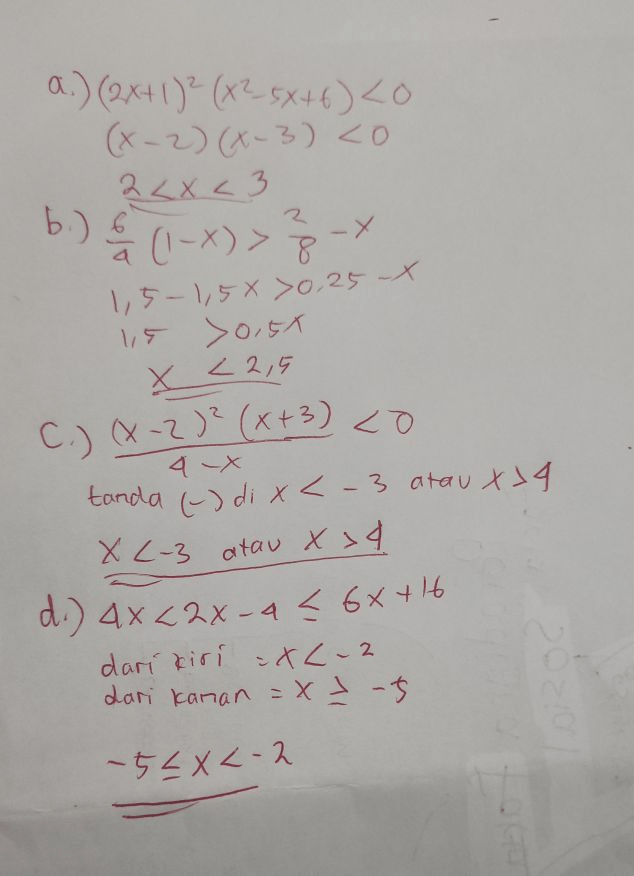 a.) (2x+1)² (x²-5x+6) < 0
(x-2) (x-3) < 0
2 < x < 3
b.) 6/4 (1-x) > 2/8 - x
1,5 - 1,5x > 0,25 - x
1,5 > 0,5x
x < 2,5
C.) (x-2)² (x+3) / 4-x < 0
tanda (-) di x < -3 atau x > 4
x < -3 atau x > 4
d.) 4x < 2x - 4 ≤ 6x + 16
dari kiri = x < -2
dari kanan = x ≥ -5
-5 ≤ x < -2